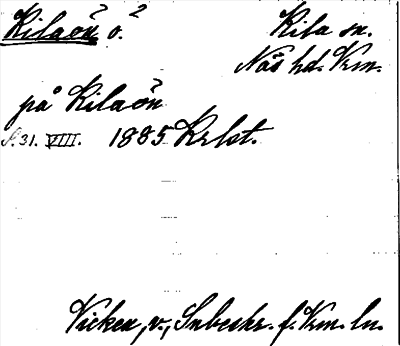 Kilaön ö.²
Kila sn.
Näs hd. Vrm.
på Kilaön
S. 31. VIII. 1885 Krbt.
Vicken, v., Snbeskr. f. Vrm. ln.